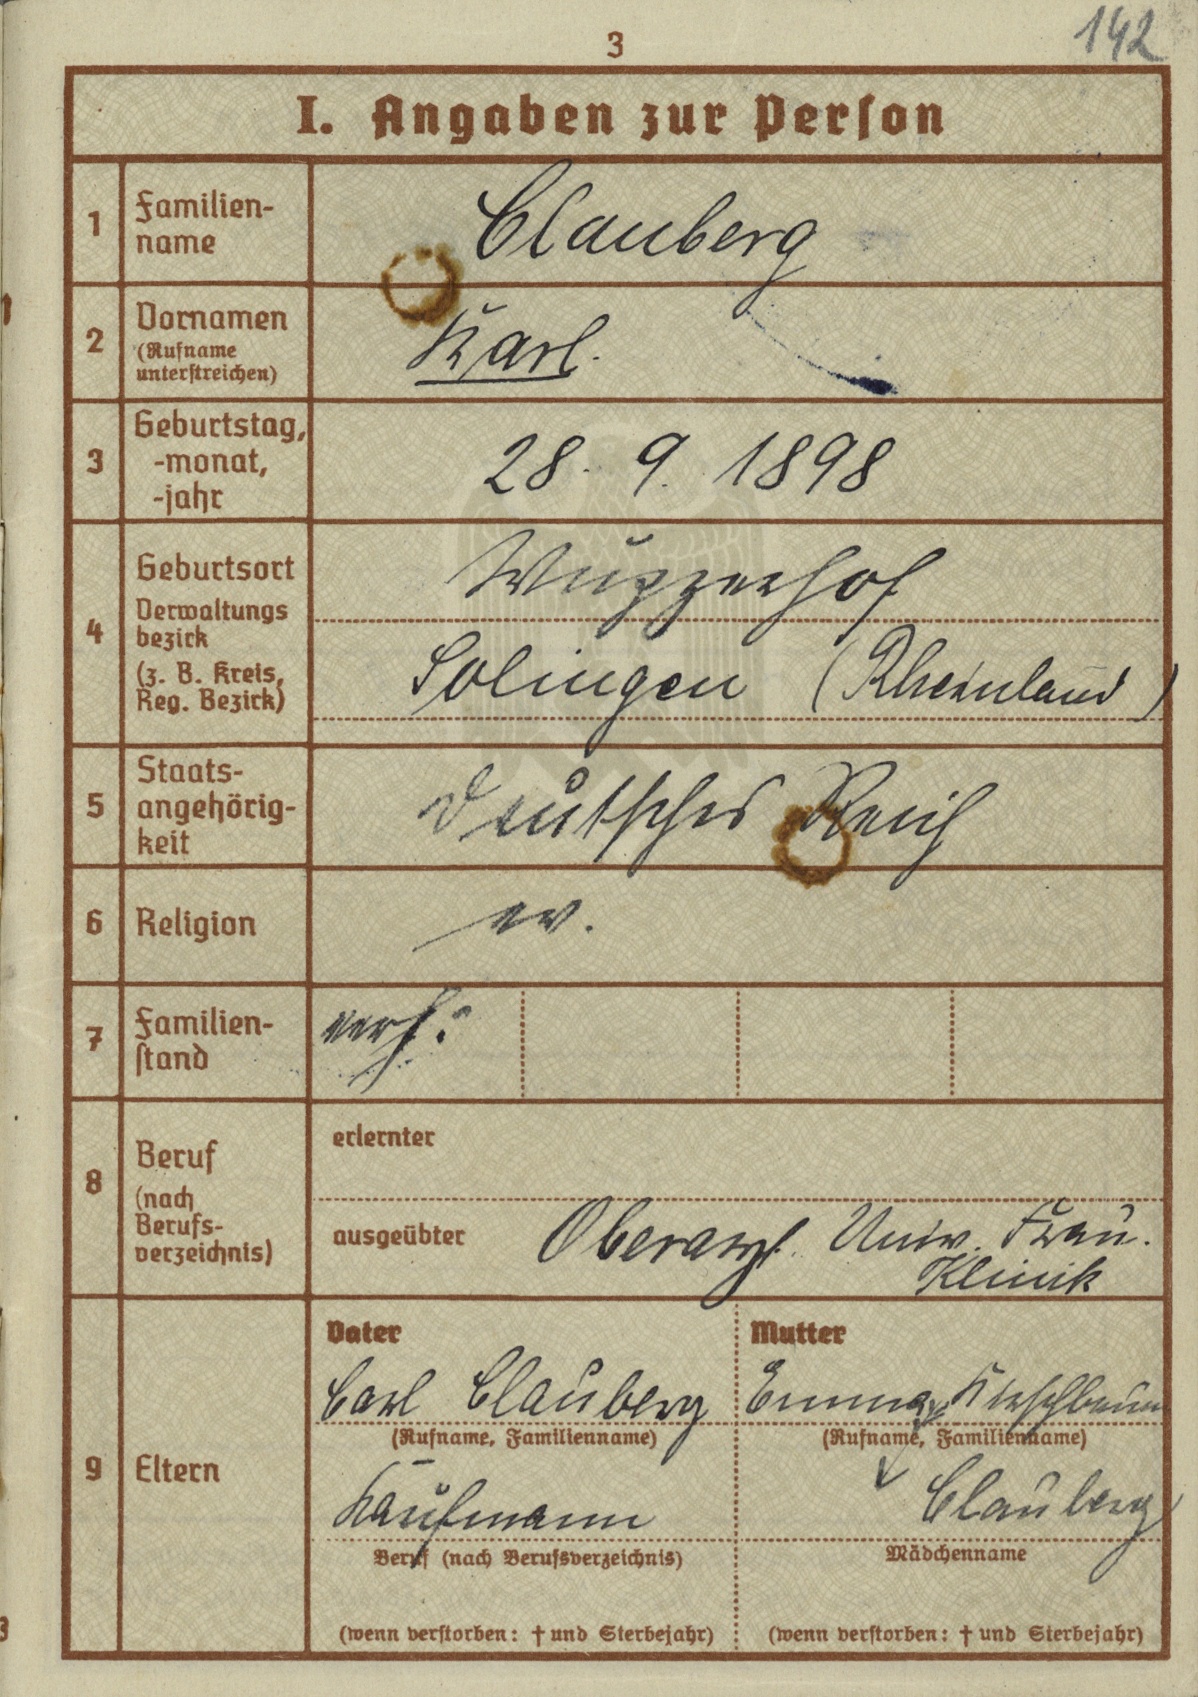 3
142
I. Angaben zur Person
1
Familien-
name
Clauberg
2
Vornamen
(Rufname
unterstreichen)
Karl.
3
Geburtstag,
-monat,
-jahr
28. 9. 1898
4
Geburtsort
Verwaltungs
bezirk
(z. B. Kreis,
Reg. Bezirk)
Wupperhof
Solingen (Rheinland)
5
Staats-
angehörig-
keit
Deutsches Reich
6
Religion
ev.
7
Familien-
stand
verh.
8
Beruf
(nach
Berufs-
verzeichnis)
erlernter
ausgeübter
Oberarzt. Univ. Frau.
Klinik
9
Eltern
Vater
Carl Clauberg
(Rufname, Familienname)
Kaufmann
Beruf (nach Berufsverzeichnis)
(wenn verstorben: † und Sterbejahr)
Mutter
Emma Kirschbaum
(Rufname, Familienname)
Clauberg
Mädchenname
(wenn verstorben: † und Sterbejahr)